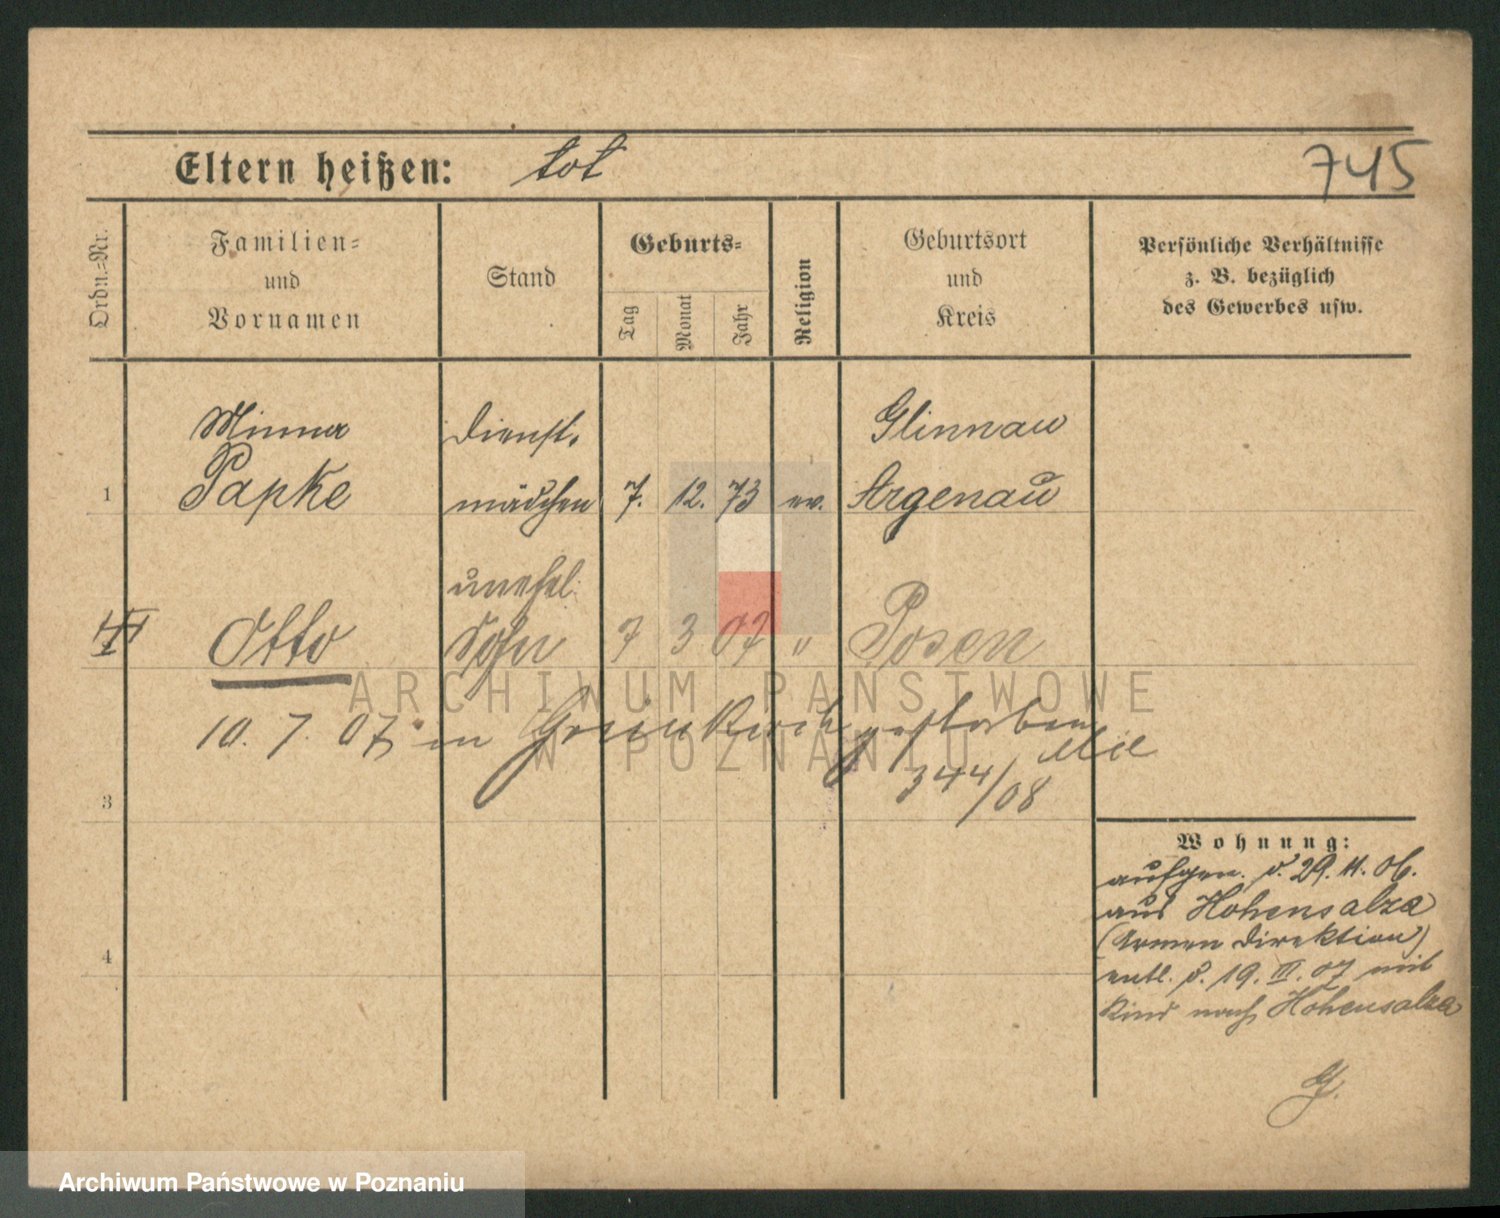 Eltern heißen: tot
745
Ordn.-Nr.
Familien-
und
Vornamen
Stand
Geburts-
Tag
Monat
Jahr
Religion
Geburtsort
und
Kreis
Persönliche Verhältnisse
z. B. bezüglich
des Gewerbes usw.
Minna Dienst- Glinnau
1 Papke mädchen 7. 12. 73 ev. Argenau
unehel.
Otto Sohn 7 3 07 " Posen
10. 7. 07 in Grünkirch gestorben
344/08
3
Wohnung:
aufgen. d. 29. 11. 06.
aus Hohensalza
(Armen Direktion)
4
entl. d. 19. III. 07 mit
Kind nach Hohensalza
G.
ARCHIWUM PAŃSTWOWE
W POZNANIU
Archiwum Państwowe w Poznaniu